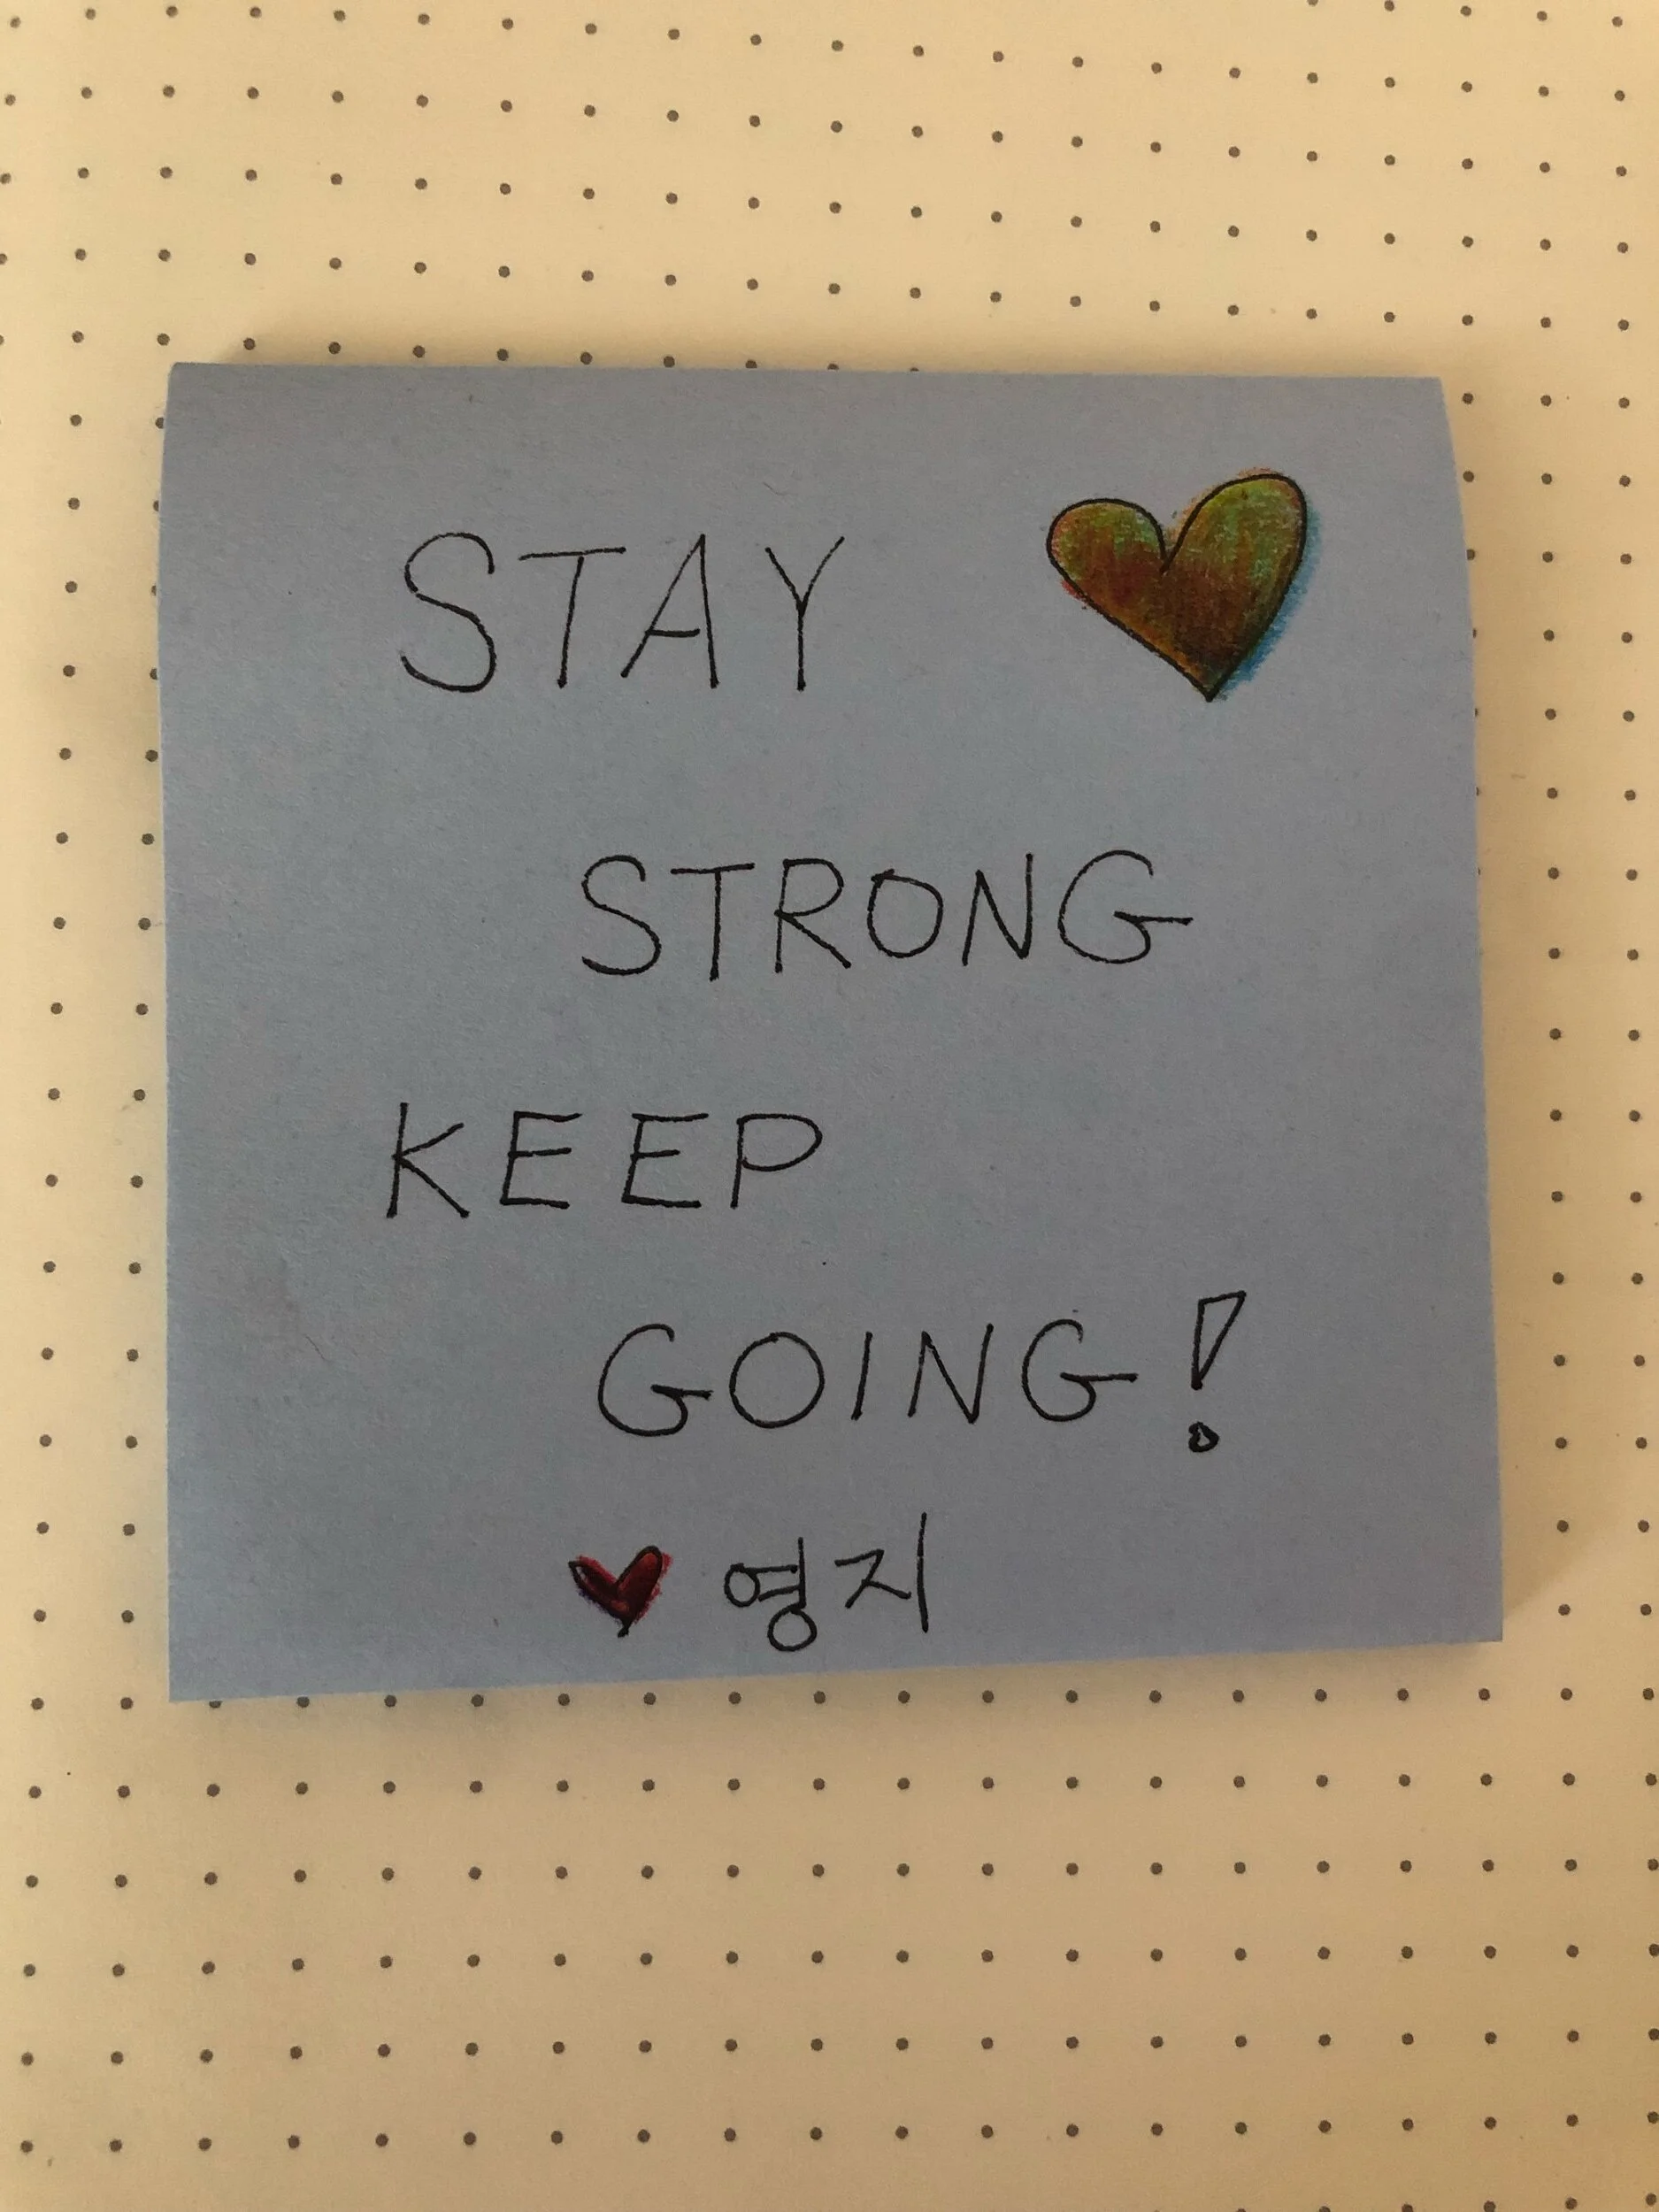 STAY
STRONG
KEEP
GOING!
영지